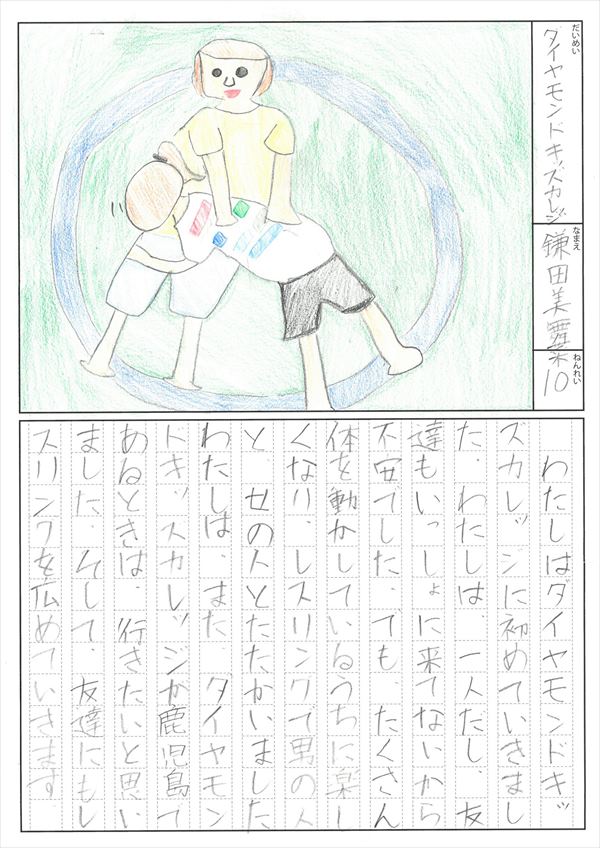 だいめい
ダイヤモンドキッズカレッジ
なまえ
鎌田美舞
ねんれい
10
わたしはダイヤモンドキッ
ズカレッジに初めていきまし
た。わたしは、一人だし、友
達もいっしょに来てないから
不安でした。ても、たくさん
体を動かしているうちに楽し
くなり、レスリングで男の人
と、女の人とたたかいました
わたしは、また、ダイヤモン
ドキッズカレッジが鹿児島で
あるときは、行きたいと思い
ました。そして、友達にもレ
スリングを広めていきます